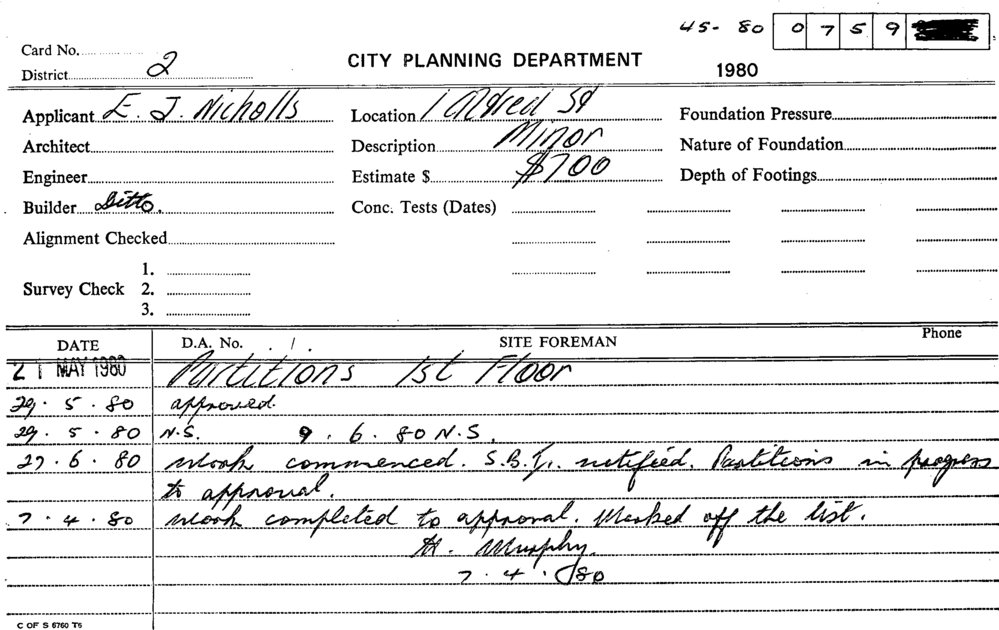 45- 80 0 7 5 9
Card No.
CITY PLANNING DEPARTMENT
District 2
1980
Applicant E. J. Nicholls Location 1 Alfred St Foundation Pressure
Architect Description Minor Nature of Foundation
Engineer Estimate $ $700 Depth of Footings
Builder Ditto. Conc. Tests (Dates)
Alignment Checked
1.
Survey Check 2.
3.
DATE D.A. No. SITE FOREMAN Phone
21 MAY 1980 Partitions 1st Floor
29. 5. 80 approved.
29. 5. 80 N.S. 9. 6. 80 N.S.
27. 6. 80 Work commenced. notified. Partitions in progress
to approval.
7. 4. 80 Work completed to approval. Marked off the list.
H. Murphy.
7. 4. 80
C OF S 6760 T6